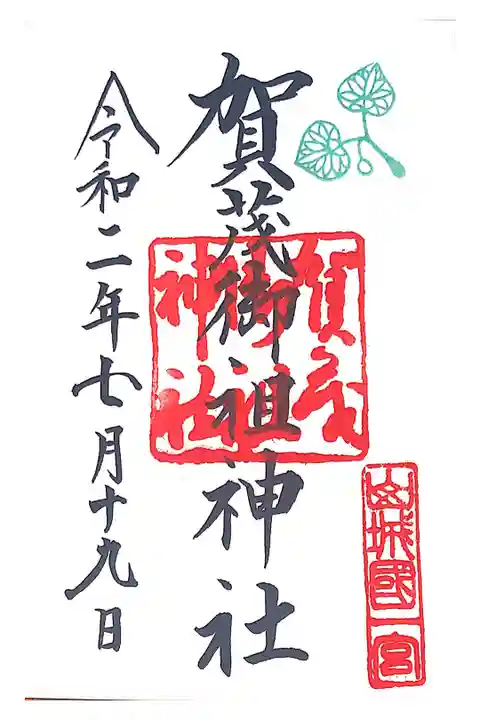 山城國一宮
賀茂御祖神社
賀茂御祖神社
令和二年七月十九日